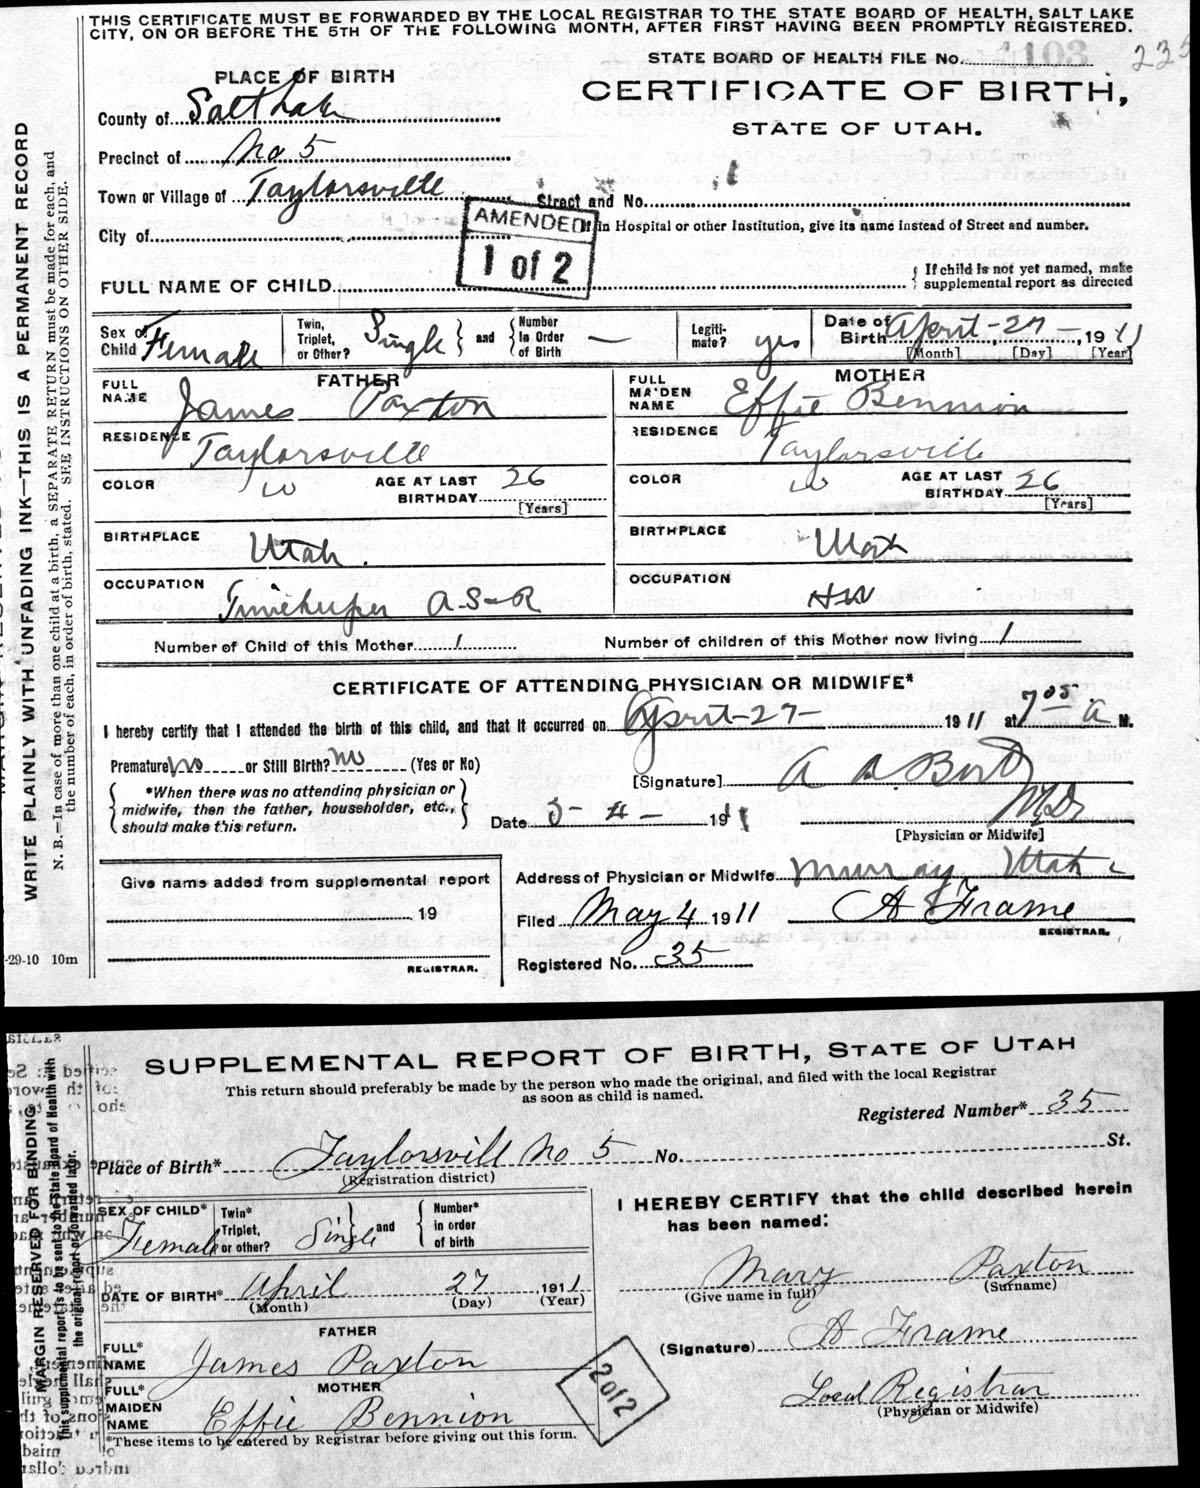 THIS CERTIFICATE MUST BE FORWARDED BY THE LOCAL REGISTRAR TO THE STATE BOARD OF HEALTH, SALT LAKE
CITY, ON OR BEFORE THE 5TH OF THE FOLLOWING MONTH, AFTER FIRST HAVING BEEN PROMPTLY REGISTERED.
STATE BOARD OF HEALTH FILE No. 1103 235
PLACE OF BIRTH
CERTIFICATE OF BIRTH,
STATE OF UTAH.
County of Salt Lake
Precinct of No 5
Town or Village of Taylorsville
Street and No.
City of
in Hospital or other Institution, give its name instead of Street and number.
AMENDED
1 of 2
FULL NAME OF CHILD
{ If child is not yet named, make
supplemental report as directed
Sex of Child Female
Twin, Triplet, or Other? Single } and { Number In Order of Birth —
Legitimate? yes
Date of Birth April - 27 - , 1911
[Month] [Day] [Year]
FATHER
FULL NAME James Paxton
RESIDENCE Taylorsville
COLOR W
AGE AT LAST BIRTHDAY 26
[Years]
BIRTHPLACE Utah.
OCCUPATION Timekeeper A.S&R
MOTHER
FULL MAIDEN NAME Effie Bennion
RESIDENCE Taylorsville
COLOR W
AGE AT LAST BIRTHDAY 26
[Years]
BIRTHPLACE Utah
OCCUPATION HW
Number of Child of this Mother 1
Number of children of this Mother now living 1
CERTIFICATE OF ATTENDING PHYSICIAN OR MIDWIFE*
I hereby certify that I attended the birth of this child, and that it occurred on April-27- 1911 at 7 05 a M.
Premature no or Still Birth? no (Yes or No)
[Signature] A
{ *When there was no attending physician or
midwife, then the father, householder, etc.,
should make this return. }
Date 5-4- 191
[Physician or Midwife]
Address of Physician or Midwife Murray Utah
Filed May 4 1911 A Frame
REGISTRAR.
Registered No. 35
Give name added from supplemental report
19
REGISTRAR.
WRITE PLAINLY WITH UNFADING INK—THIS IS A PERMANENT RECORD
N. B.—In case of more than one child at a birth, a SEPARATE RETURN must be made for each, and
the number of each, in order of birth, stated. SEE INSTRUCTIONS ON OTHER SIDE.
-29-10 10m
SUPPLEMENTAL REPORT OF BIRTH, STATE OF UTAH
This return should preferably be made by the person who made the original, and filed with the local Registrar
as soon as child is named.
Registered Number* 35
Place of Birth* Taylorsvill No 5 No. St.
(Registration district)
SEX OF CHILD* Female
Twin* Triplet, or other? Single } and { Number* in order of birth
DATE OF BIRTH* April 27 , 1911
(Month) (Day) (Year)
FATHER
FULL* NAME James Paxton
MOTHER
FULL* MAIDEN NAME Effie Bennion
*These items to be entered by Registrar before giving out this form.
2 of 2
I HEREBY CERTIFY that the child described herein
has been named:
Mary Paxton
(Give name in full) (Surname)
(Signature) A Frame
Local Registrar
(Physician or Midwife)
MARGIN RESERVED FOR BINDING
This supplemental report is to be sent to the State Board of Health with
the original report or forwarded later.